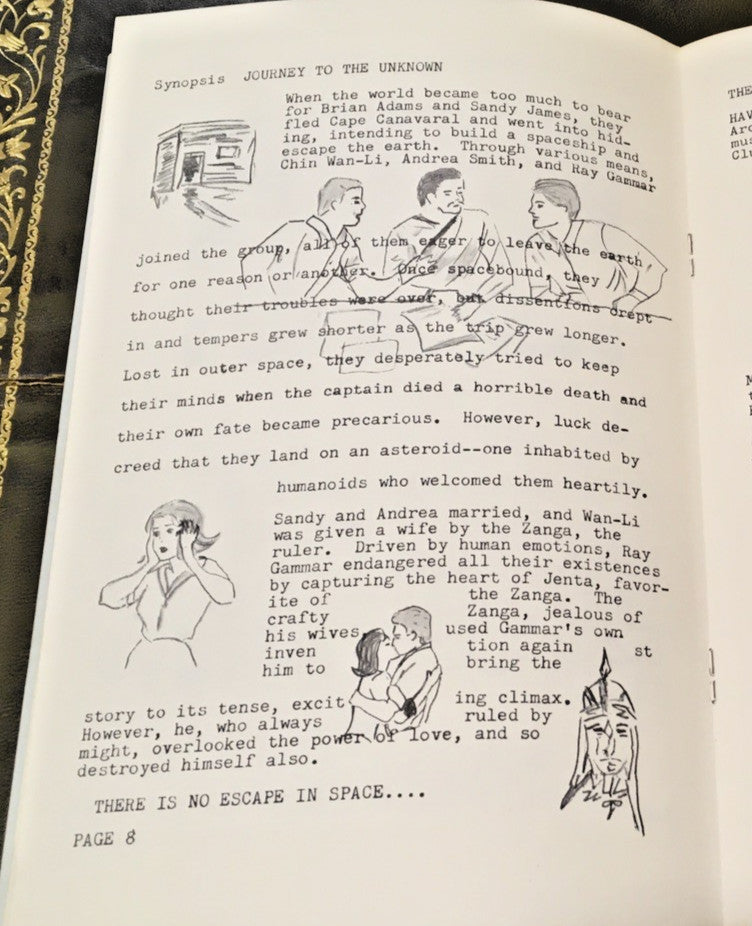 Synopsis JOURNEY TO THE UNKNOWN
When the world became too much to bear
for Brian Adams and Sandy James, they
fled Cape Canavaral and went into hid-
ing, intending to build a spaceship and
escape the earth. Through various means,
Chin Wan-Li, Andrea Smith, and Ray Gammar
joined the group, all of them eager to leave the earth
for one reason or another. Once spacebound, they
thought their troubles were over, but dissentions crept
in and tempers grew shorter as the trip grew longer.
Lost in outer space, they desperately tried to keep
their minds when the captain died a horrible death and
their own fate became precarious. However, luck de-
creed that they land on an asteroid--one inhabited by
humanoids who welcomed them heartily.
Sandy and Andrea married, and Wan-Li
was given a wife by the Zanga, the
ruler. Driven by human emotions, Ray
Gammar endangered all their existences
by capturing the heart of Jenta, favor-
ite of the Zanga. The
crafty Zanga, jealous of
his wives, used Gammar's own
inven tion again st
him to bring the
story to its tense, excit ing climax.
However, he, who always ruled by
might, overlooked the power of love, and so
destroyed himself also.
THERE IS NO ESCAPE IN SPACE....
PAGE 8
THE
HAV
Ar
mus
Cl